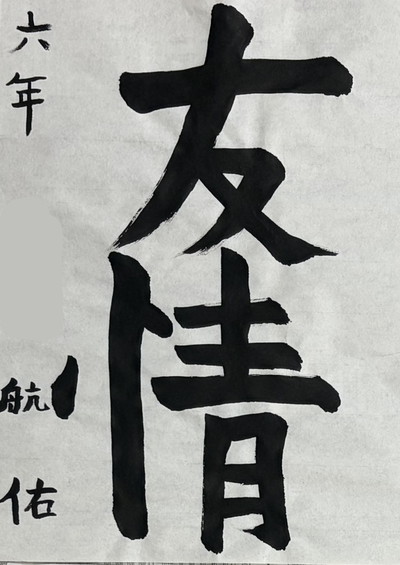 友情
六年
航佑